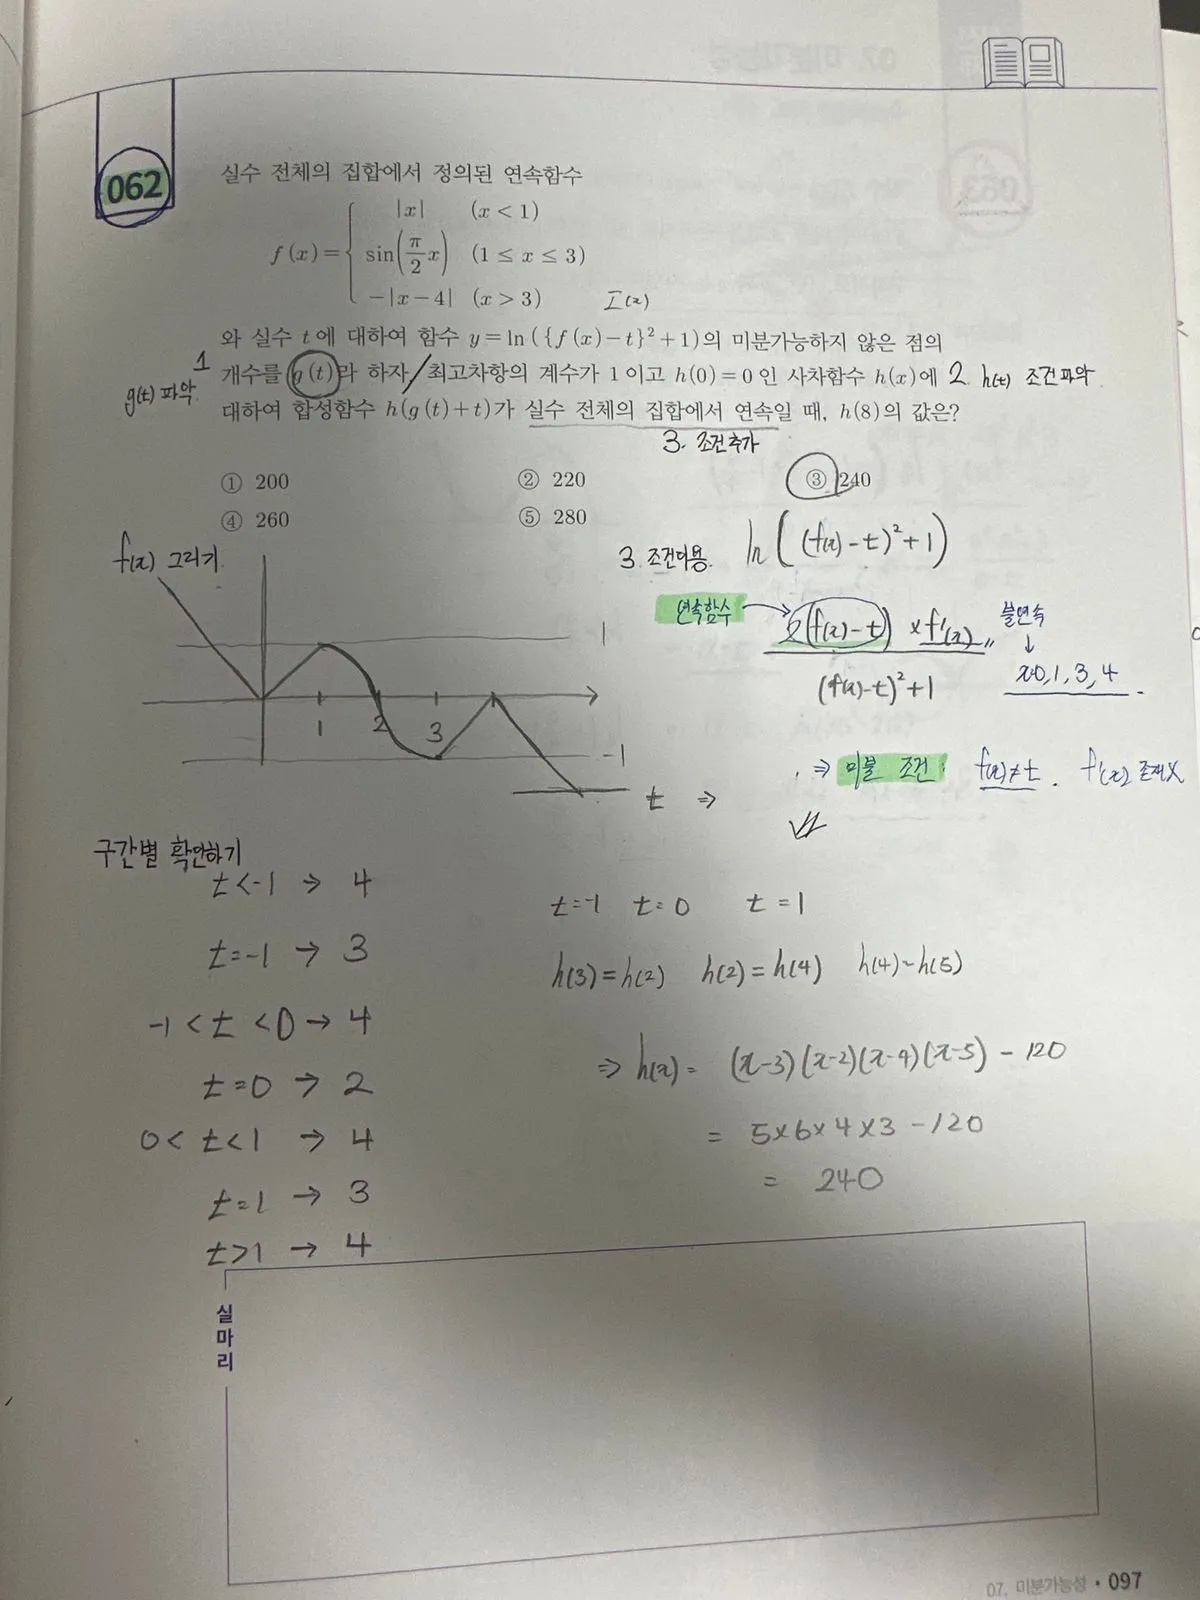 062
실수 전체의 집합에서 정의된 연속함수
f(x)= { |x| (x<1)
sin(π/2 x) (1≤x≤3)
-|x-4| (x>3)
I(x)
와 실수 t에 대하여 함수 y=ln({f(x)-t}²+1)의 미분가능하지 않은 점의
개수를 g(t)라 하자/최고차항의 계수가 1이고 h(0)=0인 사차함수 h(x)에
대하여 합성함수 h(g(t)+t)가 실수 전체의 집합에서 연속일 때, h(8)의 값은?
1
g(t) 파악.
2. h(t) 조건파악
3. 조건추가
① 200 ② 220 ③ 240
④ 260 ⑤ 280
f(x) 그리기.
1
1 2 3
-1
t ⇒
3. 조건이용. ln((f(x)-t)²+1)
연속함수 → 2(f(x)-t) × f'(x)
(f(x)-t)²+1
불연속
↓
x=0, 1, 3, 4
⇒ 미불 조건: f(x)≠t. f'(x) 존재X
구간별 확인하기
t<-1 → 4
t=-1 → 3
-1<t<0 → 4
t=0 → 2
0<t<1 → 4
t=1 → 3
t>1 → 4
t=-1 t=0 t=1
h(3)=h(2) h(2)=h(4) h(4)=h(5)
⇒ h(x) = (x-3)(x-2)(x-4)(x-5) - 120
= 5×6×4×3 - 120
= 240
실마리
07. 미분가능성 • 097